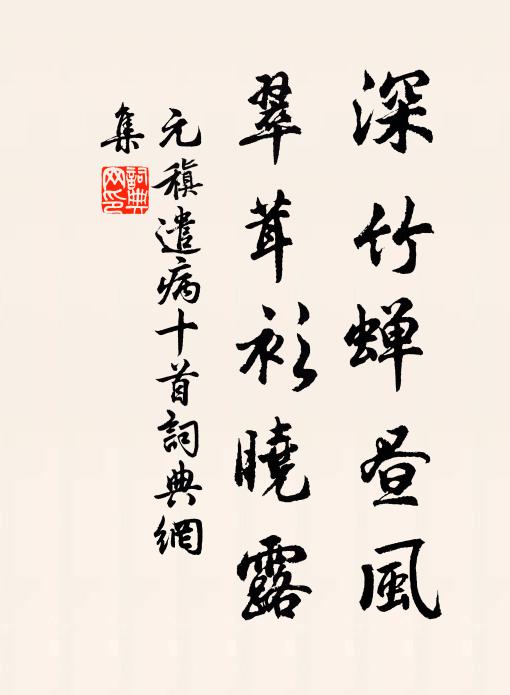 深竹蝉昼風
翠茸衫曉露
元稹遣病十首詞典網
集
詞典
网印